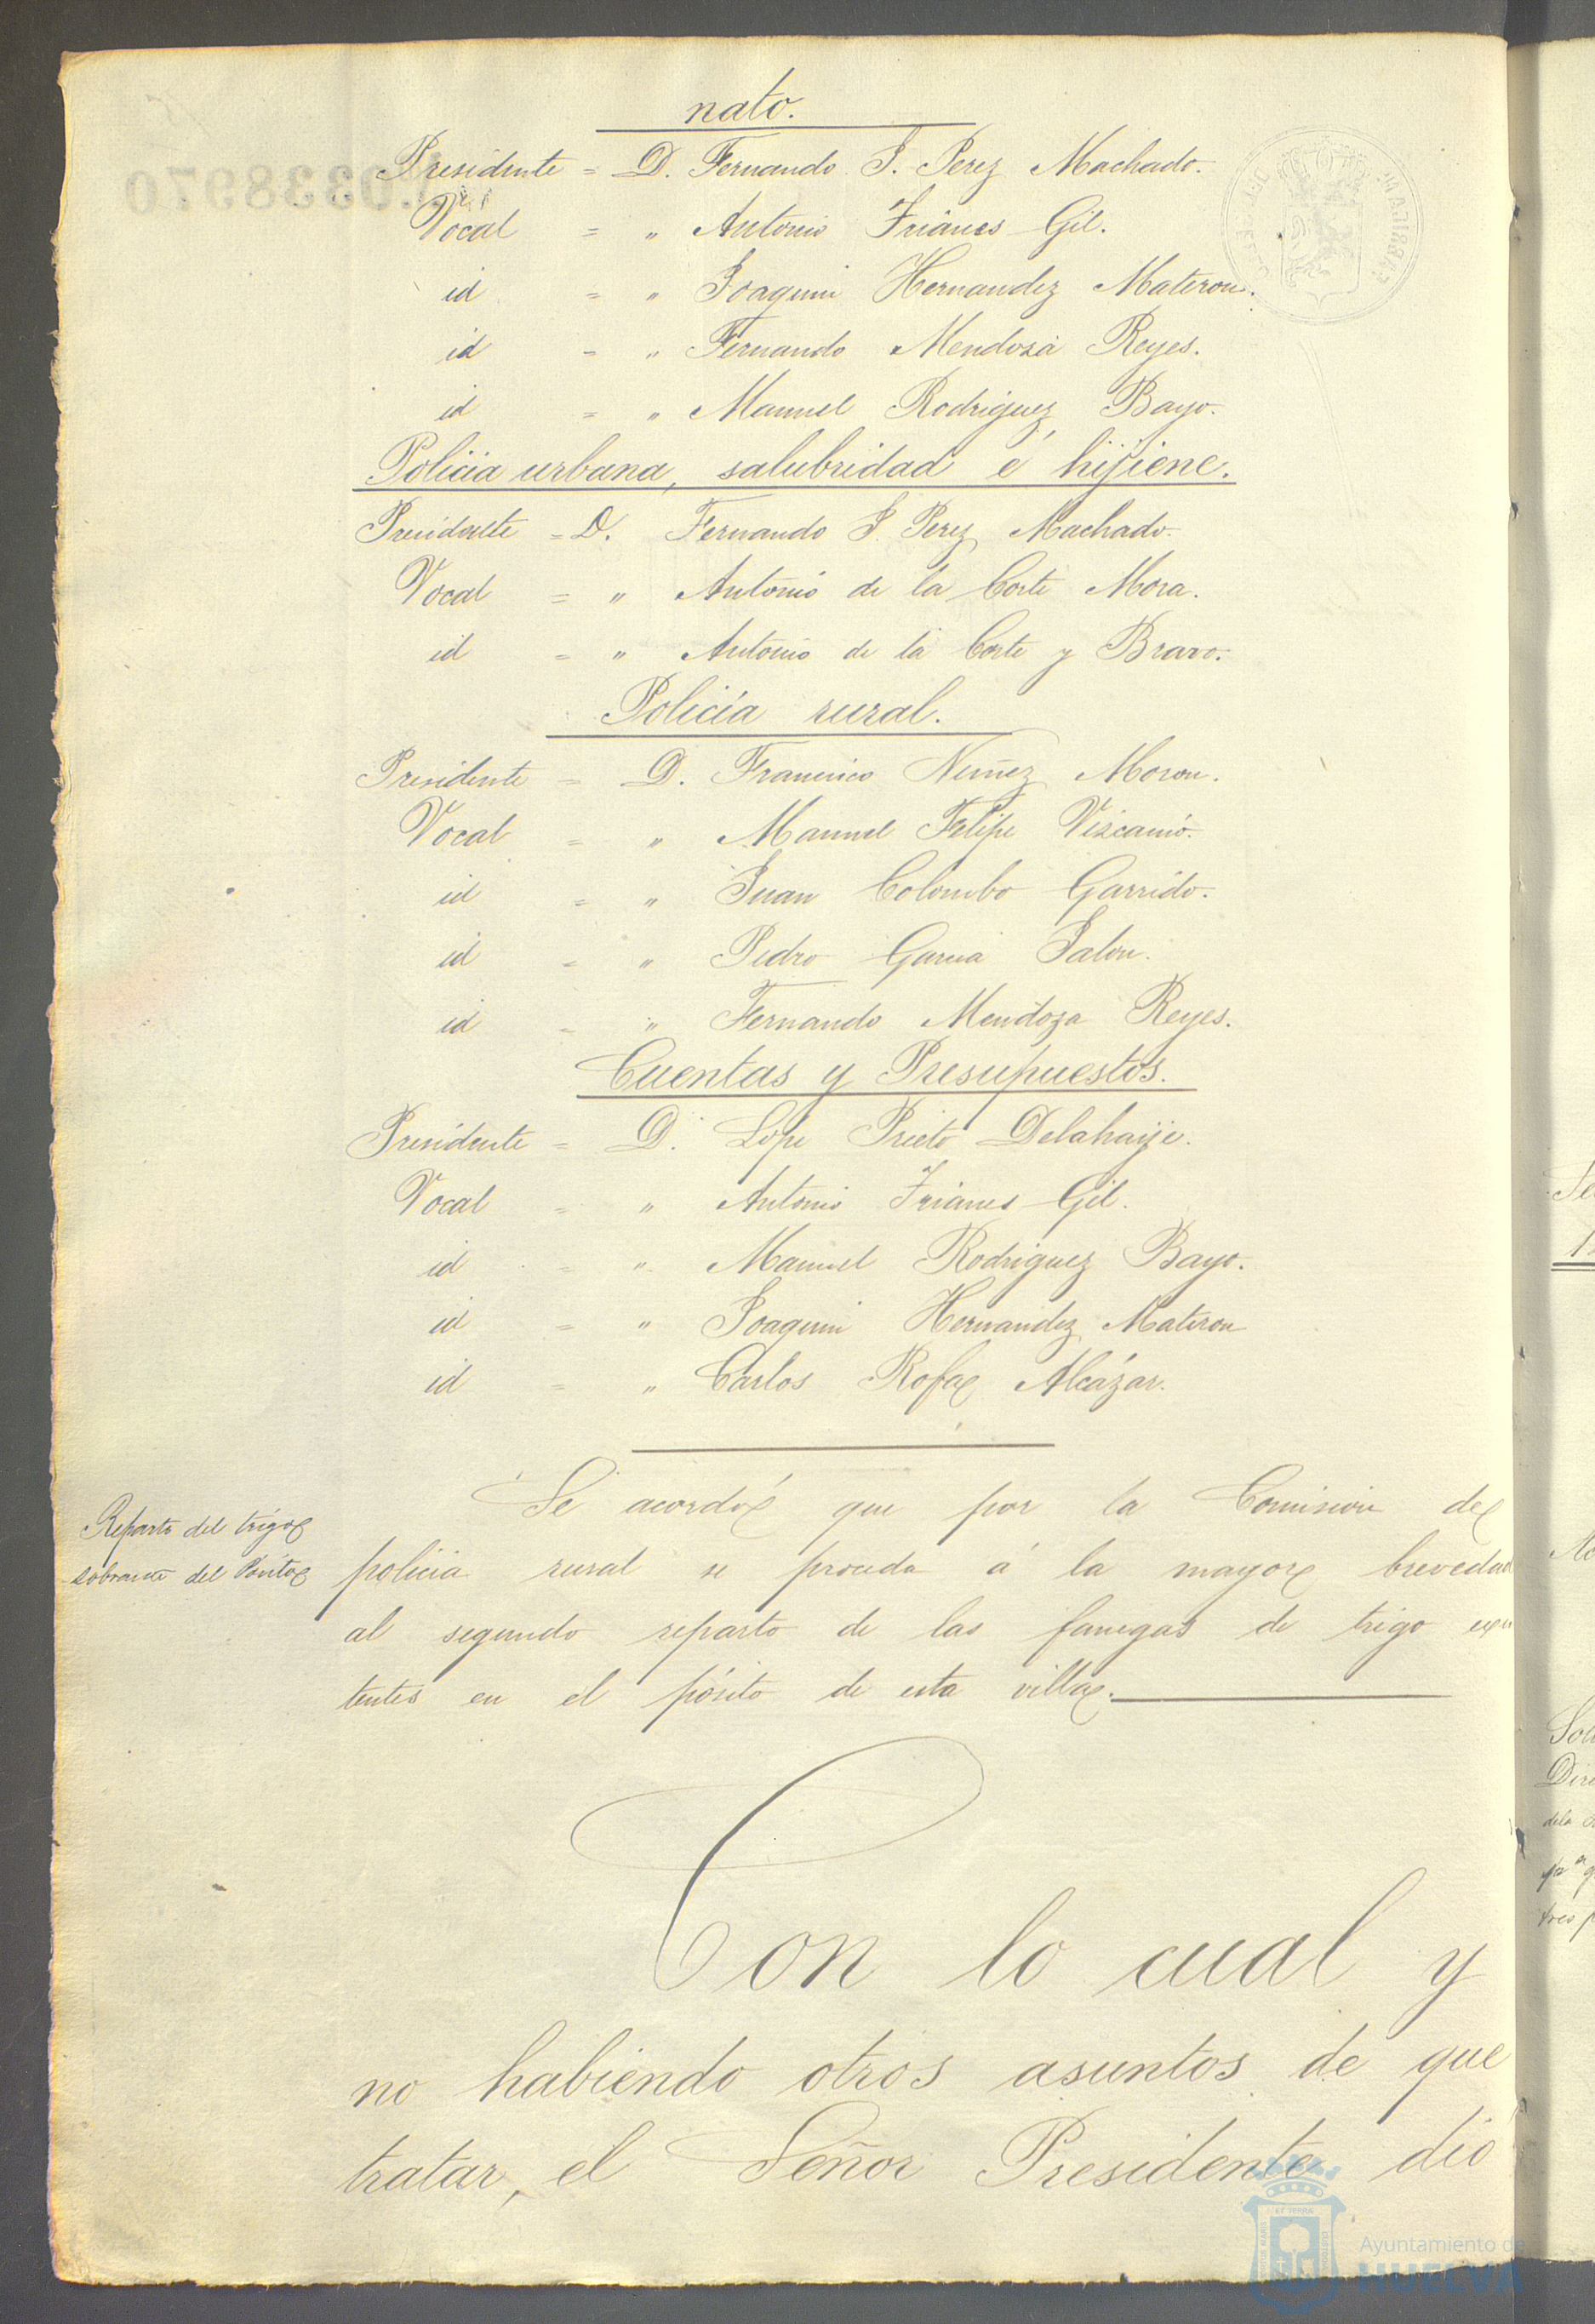 nato.
Presidente = D. Fernando J. Perez Machado.
Vocal = " Antonio Frianes Gil.
id = " Joaquin Hernandez Materon.
id = " Fernando Mendoza Reyes.
id = " Manuel Rodriguez Bayo.
Policia urbana, salubridad é hijiene.
Presidente = D. Fernando J Perez Machado.
Vocal = " Antonio de la Corte Mora.
id = " Antonio de la Corte y Bravo.
Policía rural.
Presidente = D. Francisco Nuñez Moron.
Vocal = " Manuel Felipe Vizcaino.
id = " Juan Colombo Garrido.
id = " Pedro Garcia Jalon.
id = " Fernando Mendoza Reyes.
Cuentas y Presupuestos.
Presidente = D. Lope Prieto Delahaije.
Vocal = " Antonio Frianes Gil.
id = " Manuel Rodriguez Bayo.
id = " Joaquin Hernandez Materon
id = " Carlos Rofa Alcázar.
Reparto del trigo
sobrante del Pósito
Se acordó que por la Comision de
policia rural se proceda á la mayor brevedad
al segundo reparto de las fanegas de trigo exis
tentes en el pósito de esta villa.
Con lo cual y
no habiendo otros asuntos de que
tratar, el Señor Presidente dió
0338970
Ayuntamiento de
HUELVA